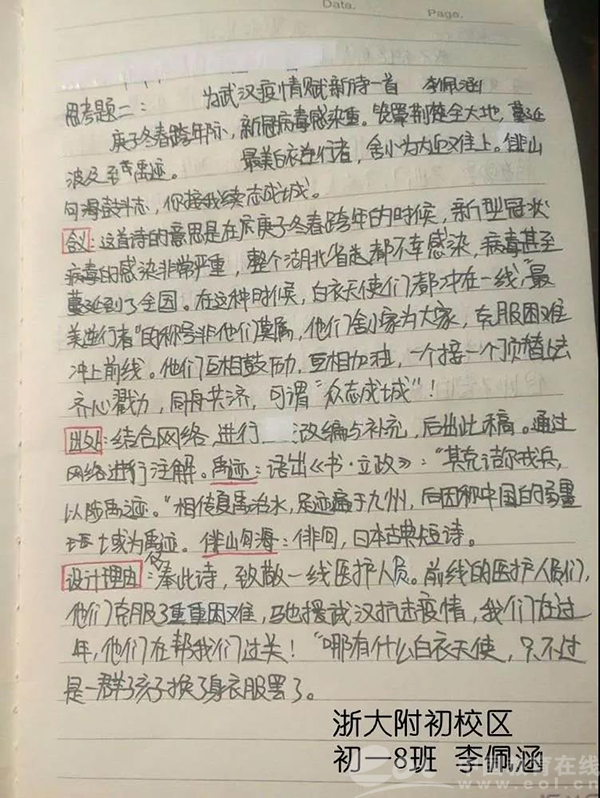 Date.
Page.
思考题二：为武汉疫情赋新诗一首 李佩涵
庚子冬春跨年际，新冠病毒感染重。笼罩荆楚全大地，蔓延
波及至禹迹。最美白衣逆行者，舍小为大迎难上。俳山
句海鼓斗志，你接我续志成城。
含义：这首诗的意思是在庚子冬春跨年的时候，新型冠状
病毒的感染非常严重，整个湖北省都不幸感染，病毒甚至
蔓延到了全国。在这种时候，白衣天使们都冲在一线，"最
美逆行者"的称号非他们莫属，他们舍小家为大家，克服困难
冲上前线。他们互相鼓励，互相加油，一个接一个顶替上去
齐心戮力，同舟共济，可谓"众志成城"！
出处：结合网络进行 改编与补充，后出此稿。通过
网络进行注解。禹迹：语出《书·立政》："其克诘尔戎兵，
以陟禹之迹。"相传夏禹治水，足迹遍于九州，后因称中国的疆
域为禹迹。俳山句海：俳句，日本古典短诗。
设计理由：奉此诗，致敬一线医护人员。前线的医护人员们，
他们克服了重重困难，驰援武汉抗击疫情，我们在过
年，他们在帮我们过关！"哪有什么白衣天使，只不过
是一群孩子换了身衣服罢了。
浙大附初校区
初一8班 李佩涵
中国教育在线
www.eol.cn